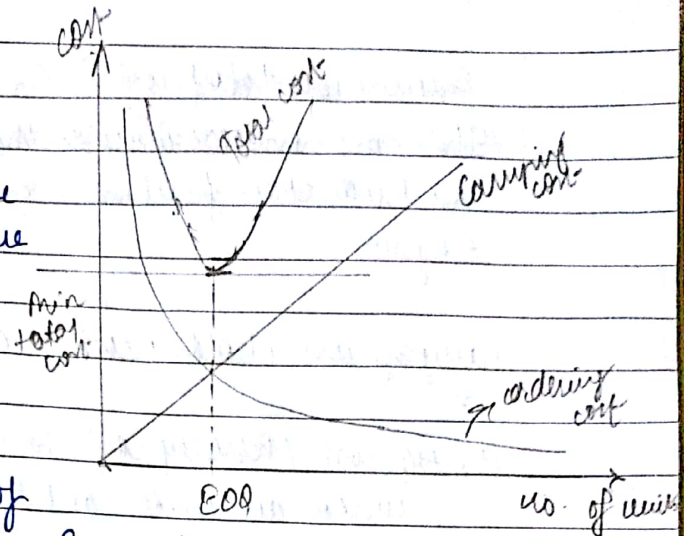 cost
Total cost
Carrying
cost
Min
total
cost
ordering
cost
EOQ
no. of units
of